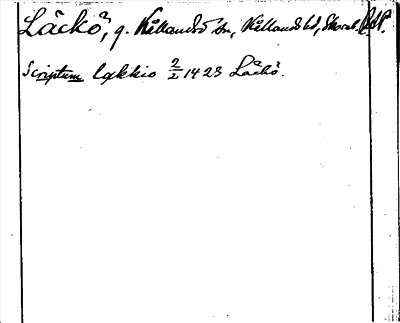 Läckö, g. Kållandsö sn, Kållands hd, Skarab.
Scriptum lækkio 2/2 1423 Läckö.